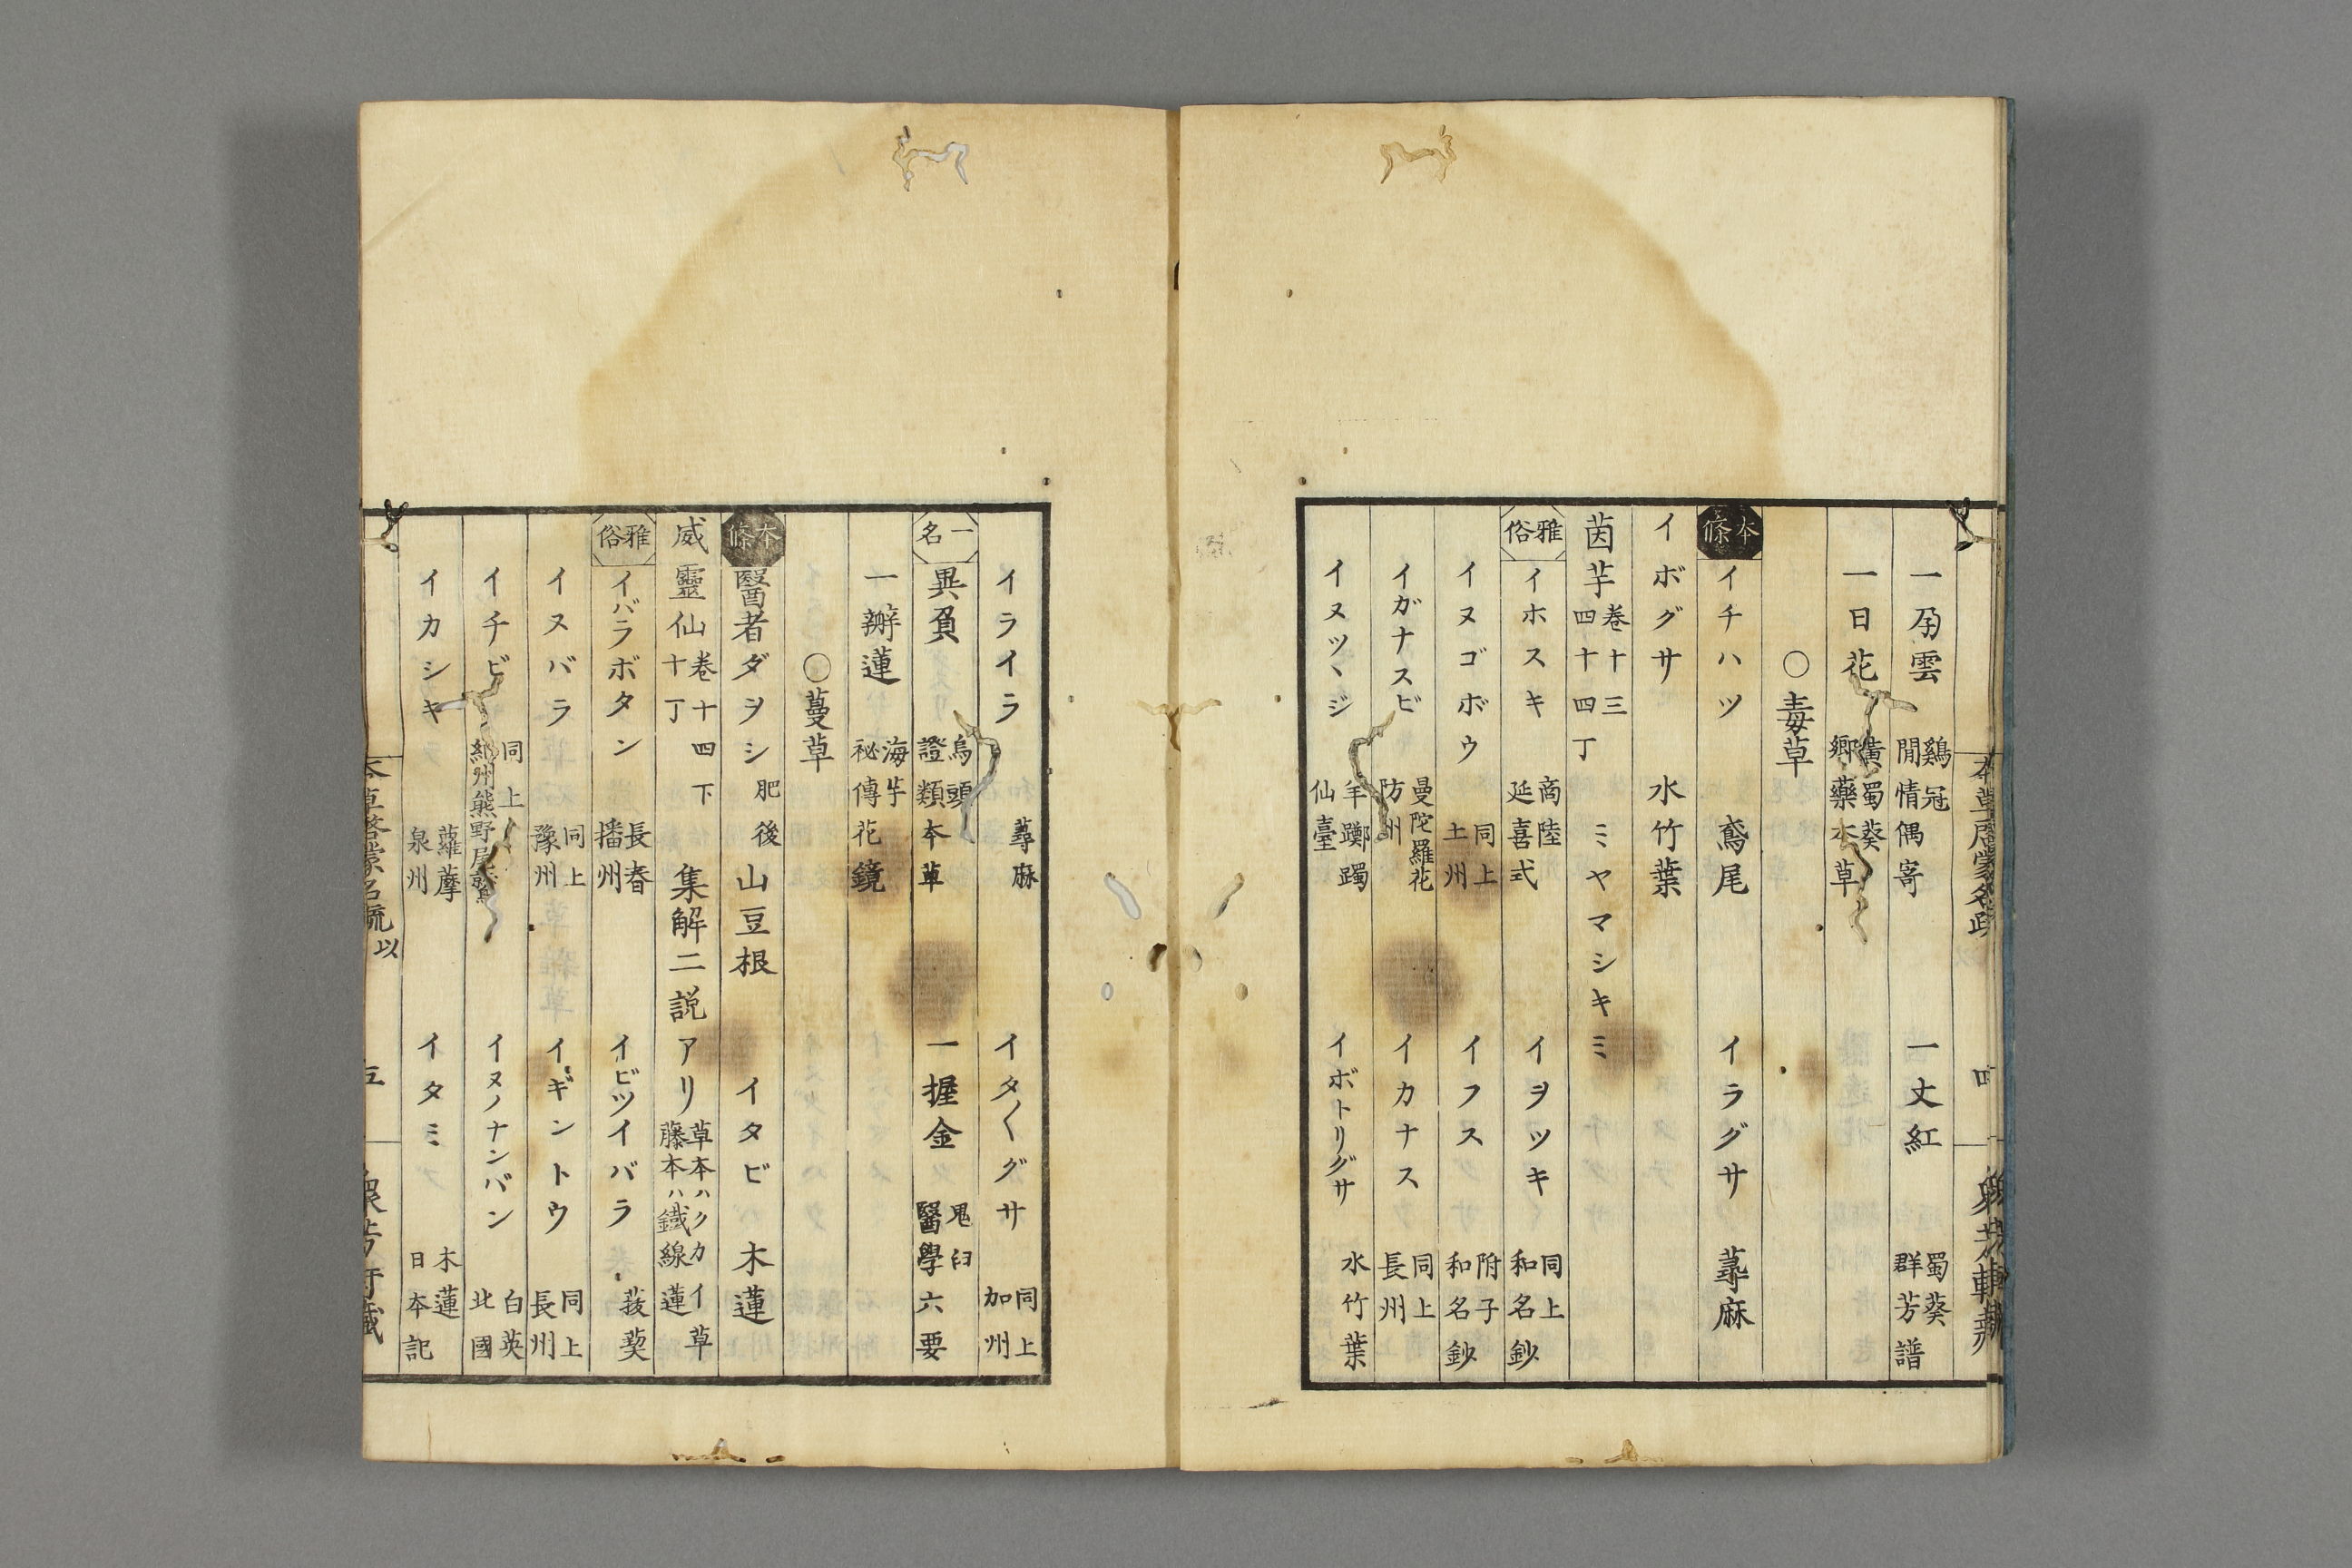 一孕雲 鷄冠 閒情偶寄 一丈紅 蜀葵 群芳譜
一日花 黃蜀葵 鄉藥本草
○毒草
本條 イチハツ 鳶尾 イラグサ 蕁麻
イボグサ 水竹葉
茵芋 卷十三 四十四丁 ミヤマシキミ
雅俗 イホスキ 商陸 延喜式 イヲツキ 同上 和名鈔
イヌゴボウ 同上 土州 イフス 附子 和名鈔
イガナスビ 曼陀羅花 防州 イカナス 同上 長州
イヌツヽジ 羊躑躅 仙臺 イボトリグサ 水竹葉
本草啓蒙名疏 四
イライラ 蕁麻 イタ〱グサ 同上 加州
一名 異負 烏頭 證類本草 一握金 鬼臼 醫學六要
一瓣蓮 海芋 祕傳花鏡
○蔓草
本條 醫者ダヲシ 肥後 山豆根 イタビ 木蓮
威靈仙 卷十四下 十丁 集解二説アリ 草本ハクカイ草 藤本ハ鐵線蓮
雅俗 イバラボタン 長春 播州 イビツイバラ 菝葜
イヌバラ 同上 豫州 イギントウ 同上 長州
イチビ 同上 紀州熊野尾鷲 イヌノナンバン 白英 北國
イカシキ 蘿藦 泉州 イタミ 木蓮 日本記
本草啓蒙名疏 以 五